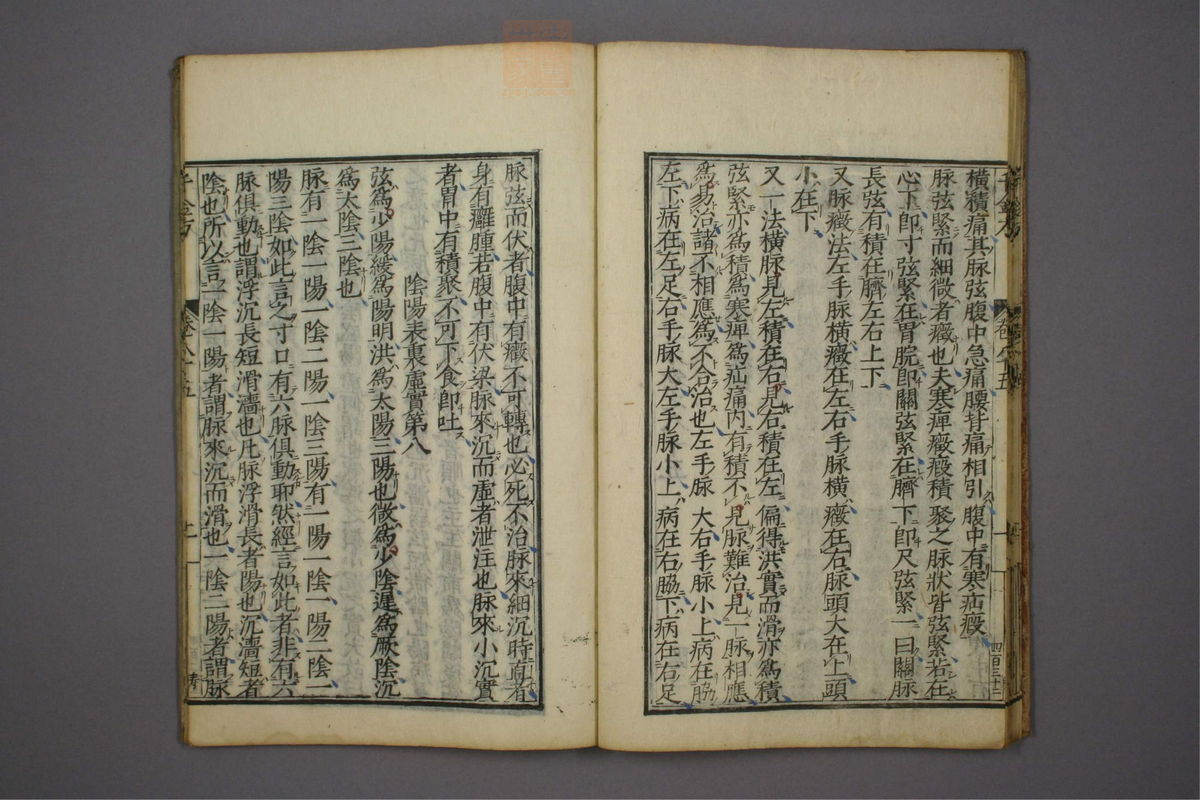 横積痛其脉弦腹中急痛腰背痛相引腹中有寒疝瘕
脉弦緊而細微者癥也夫寒痺癥瘕積聚之脉狀皆弦緊若在
心下即寸弦緊在胃脘即關弦緊在臍下即尺弦緊一曰關脉
長弦有積在臍左右上下
又脉癥法左手脉横癥在左右手脉横癥在右脉頭大在上頭
小在下
又一法横脉見左積在右見右積在左偏得洪實而滑亦爲積
弦緊亦爲積爲寒痺爲疝痛内有積不見脉難治見一脉相應
爲易治諸不相應爲不合治也左手脉大右手脉小上病在脇
左下病在左足右手脉大左手脉小上病在右脇下病在右足
脉弦而伏者腹中有癥不可轉也必死不治脉來細沉時直者
身有癰腫若腹中有伏梁脉來沉而虛者泄注也脉來小沉實
者胃中有積聚不可下食即吐
陰陽表裏虛實第八
弦爲少陽緩爲陽明洪爲太陽三陽也微爲少陰遲爲厥陰沉
爲太陰三陰也
脉有一陰一陽一陰二陽一陰三陽有一陽一陰一陽二陰一
陽三陰如此言之寸口有六脉俱動耶然經言如此者非有六
脉俱動也謂浮沉長短滑濇也凡脉浮滑長者陽也沉濇短者
陰也所以言一陰一陽者謂脉來沉而滑也一陰二陽者謂脉